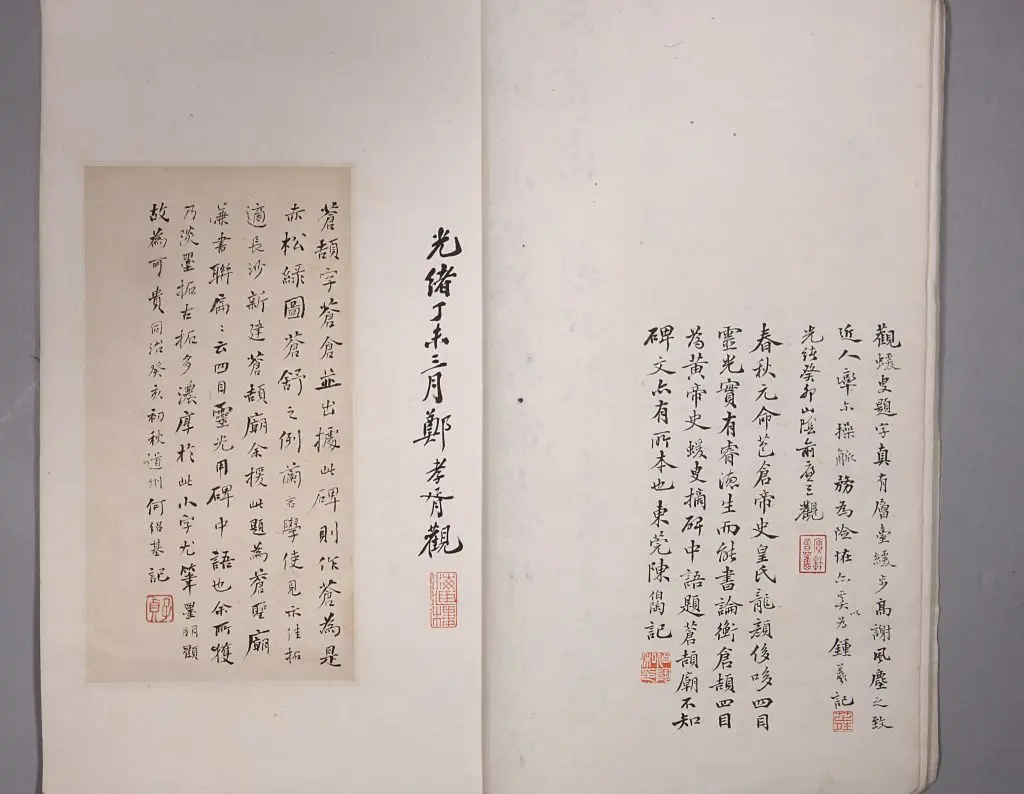 觀蝯叟題字真有層臺緩步高謝風塵之致
近人率尒操觚務為險怪亦奚以為鍾羲記
光緒癸卯山陰俞廉三觀
春秋元命苞倉帝史皇氏龍顏侈哆四目
靈光實有睿德生而能書論衡倉頡四目
為黃帝史蝯叟摘碑中語題蒼頡廟不知
碑文亦有所本也東莞陳伯陶記
光緒丁未三月鄭孝胥觀
蒼頡字蒼倉並出據此碑則作蒼為是
赤松綠圖蒼舒之例蘭言學使見示佳拓
適長沙新建蒼頡廟余援此題為蒼聖廟
兼書聯屬〻云四目靈光用碑中語也余所獲
乃淡墨拓古拓多濃厚於此小字尤筆墨明顯
故為可貴同治癸亥初秋道州何紹基記
子貞